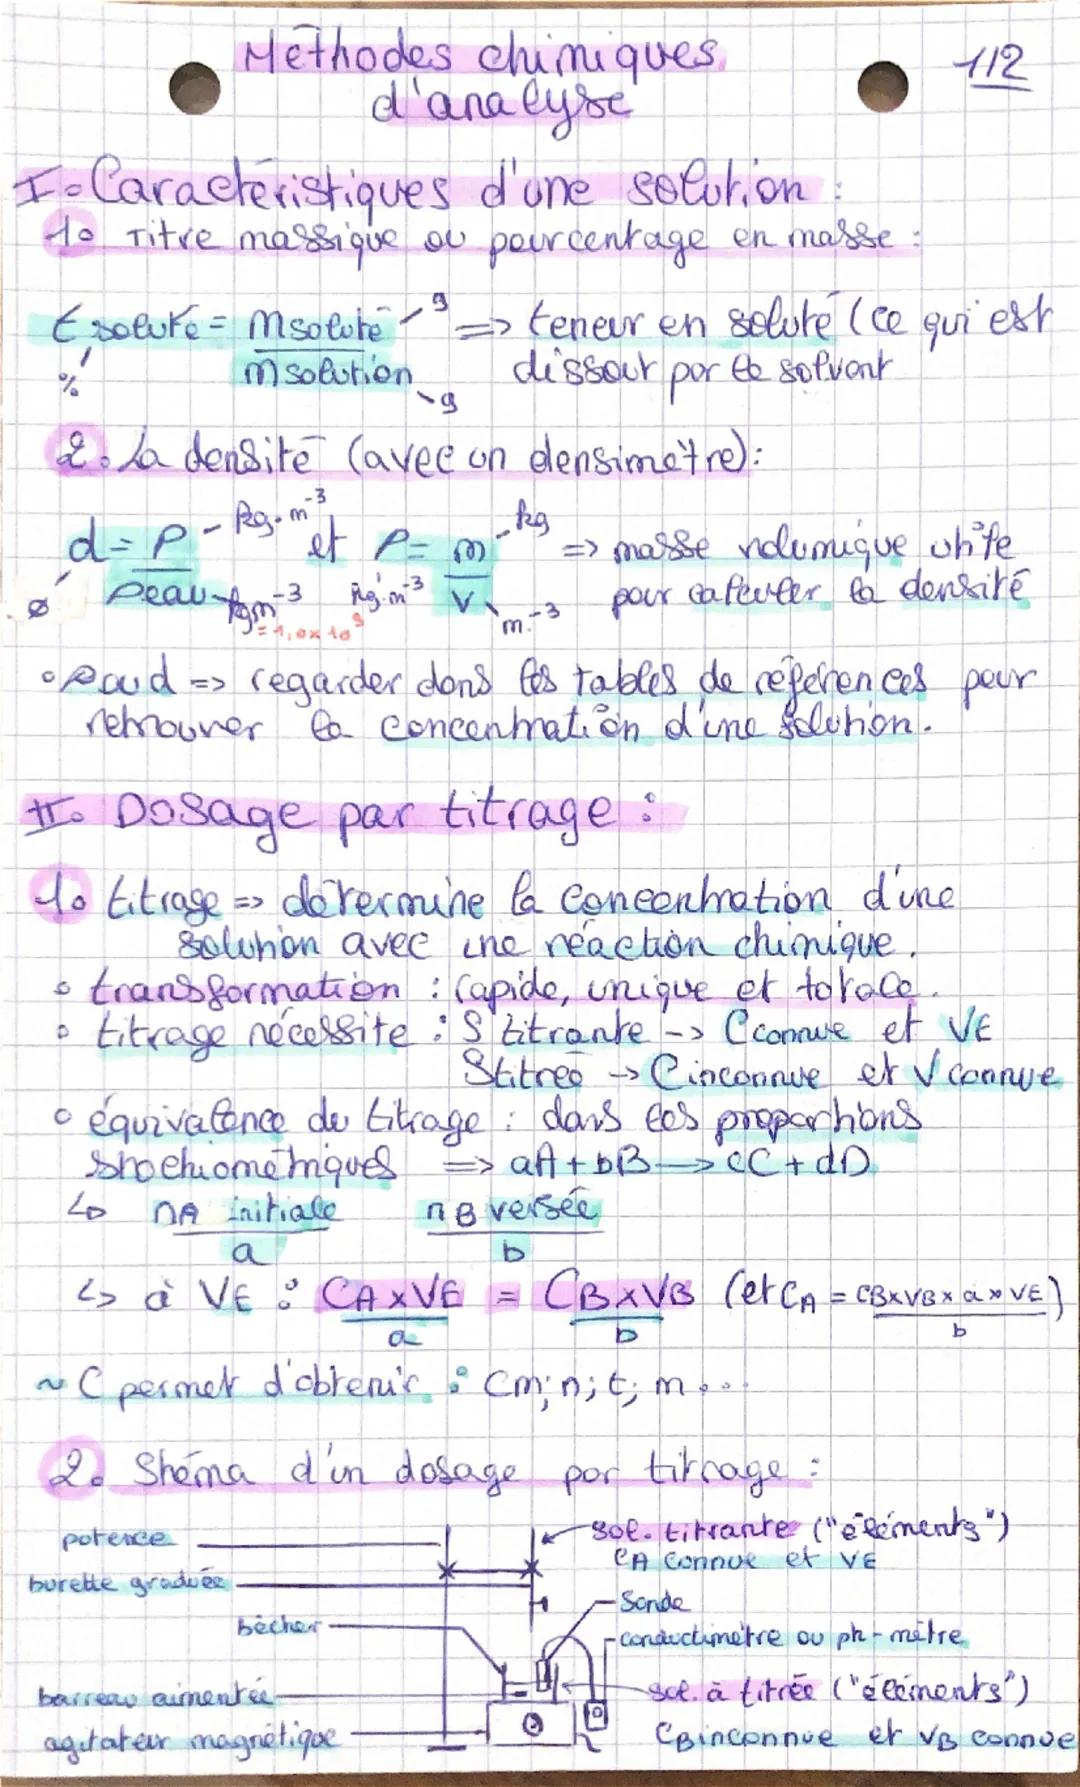 Méthodes chimiques
d'analyse
1/2
I. Caractéristiques d'une solution :
1. Titre massique ou pourcentage en masse :
t soluté = m soluté / m solution => teneur en soluté (ce qui est
% g g dissout par le solvant
2. La densité (avec un densimètre) :
d = ρ / ρeau et ρ = m / V => masse volumique utile
pour calculer la densité
ø kg.m-3 kg.m-3 = 1,0 x 10³ kg.m-3 kg m-3
• ρ ou d => regarder dans les tables de références pour
retrouver la concentration d'une solution.
II. Dosage par titrage :
1. titrage => détermine la concentration d'une
solution avec une réaction chimique.
• transformation : rapide, unique et totale.
• titrage nécessite : S titrante -> C connue et VE
S titrée -> C inconnue et V connue
• équivalence du titrage : dans les proportions
stoechiométriques => aA + bB -> cC + dD
↳ nA initiale / a nB versée / b
↳ à VE : CA x VE / a = CB x VB / b (et CA = CB x VB x a x VE / b)
~ C permet d'obtenir : Cm; n; t; m...
2. Shéma d'un dosage par titrage :
potence
burette graduée
bécher
barreau aimentée
agitateur magnétique
sol. titrante ("éléments")
CA connue et VE
Sonde
conductimètre ou ph-mètre
sol. à titrée ("éléments")
CB inconnue et VB connue